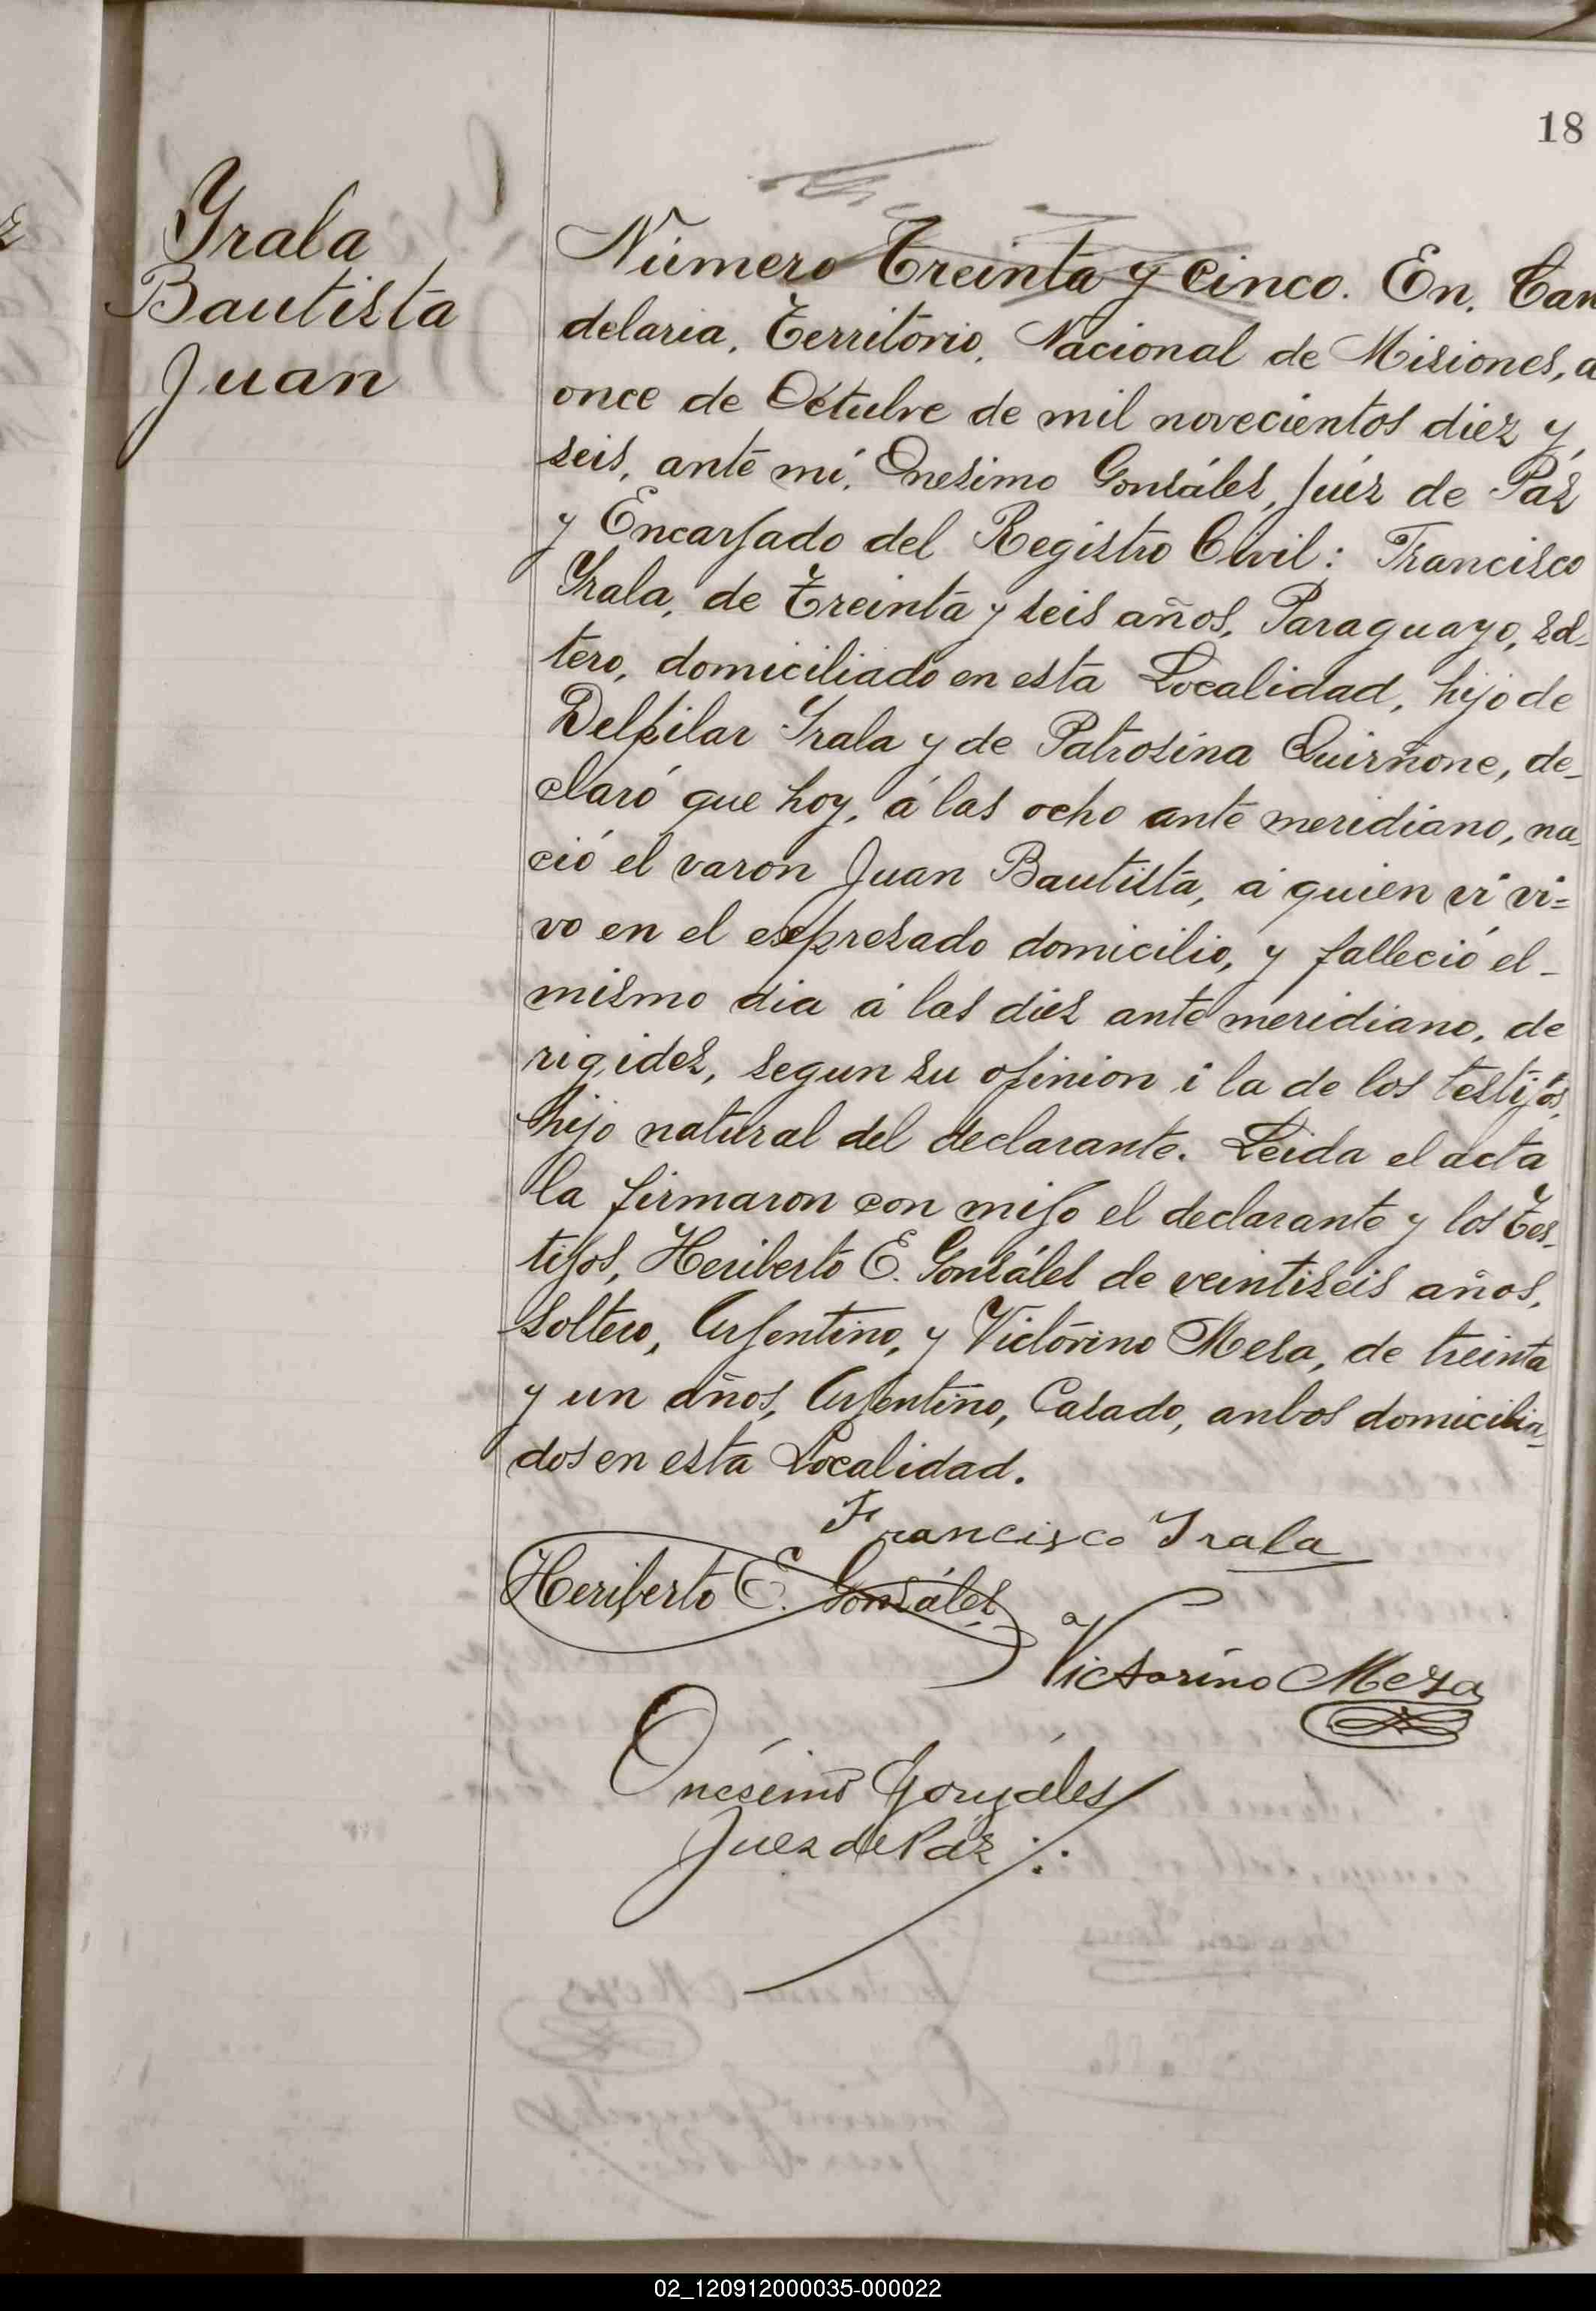 18
Yrala
Bautista
Juan
Número Treinta y Cinco. En. Can
delaria, Territorio, Nacional de Misiones, a
once de Octubre de mil novecientos diez y
seis, ante mí, Onesimo Gonsáles, Juéz de Páz
y Encargado del Registro Civil: Francisco
Yrala, de Treinta y seis años, Paraguayo, sol-
tero, domiciliado en esta Localidad, hijo de
Delpilar Yrala y de Patrosina Quirñone, de-
claró que hoy, á las ocho ante meridiano, na-
ció el varon Juan Bautista, á quien ví vi=
vo en el expresado domicilio, y falleció el-
mismo dia á las diez ante meridiano, de
rigides, segun su opinion i la de los testigos,
hijo natural del declarante. Leida el acta
la firmaron con migo el declarante y los tes-
tigos, Heriberto E. Gonsáles de veintiseis años,
soltero, Argentino, y Victorino Mesa, de treinta
y un años, Argentino, Casado, anbos domicilia-
dos en esta Localidad.
Francisco Irala
Heriberto E. Gonsáles
Victorino Meza
Onésimo Gonzáles
Juez de Páz
02_120912000035-000022